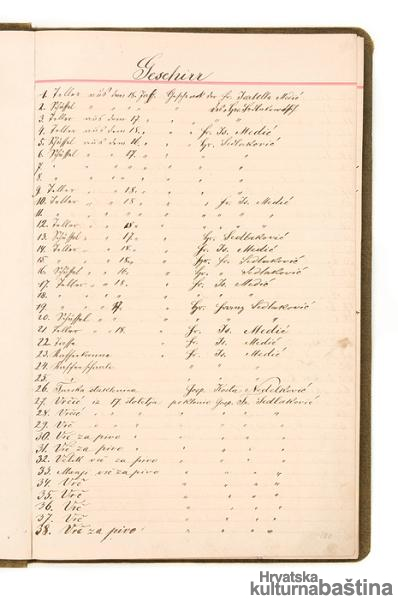 Geschirr
1. Teller aus dem 18. Jahr. Geschenk der Fr. Isabella Medić
2. Schüssel " " " "
3. Teller aus dem 17. " " "
4. Teller aus dem 18. " " Fr. Is. Medić
5. Schüssel aus dem 16. " " Hr. Sedlaković
6. Schüssel " " 17. " " "
7. " " " " " "
8. " " " " " "
9. Teller " " 18. " " "
10. Teller " " 18 " " Fr. Is. Medić
11. " " " " " " "
12. Teller " " 18. " "
13. Schüssel " " 17. " Hr. Sedlaković
14. Teller " " 18. " Fr. Is. Medić
15. " " " 18. " Hr. Fr. Sedlaković
16. Schüssel " " 16. " Hr. " Sedlaković
17. Teller " " 18. " Fr. Is. Medić
18. " " " " " "
19. " " " 17. " Hr. Franz Sedlaković
20. Schüssel " " " " "
21. Teller " " 18. " Fr. Is. Medić
22. Tasse " Fr. Is. Medić
23. Kaffeekanne " Fr. Is. Medić
24. Kaffeeschale " " "
25. " " "
26. Turska staklenina Gosp. Kosta Nedelković
27. Vrčić iz 17. stoletja poklonio Gosp. Fr. Sedlaković
28. Vrčić " " "
29. Vrč " " "
30. Vrč za pivo " " "
31. Vrč za pivo " " "
32. Velik vrč za pivo " " "
33. Manji vrč za pivo " " "
34. Vrč " " "
35. Vrč " " "
36. Vrč " " "
37. Vrč " " "
38. Vrč za pivo " " "
Hrvatska
kulturnabaština